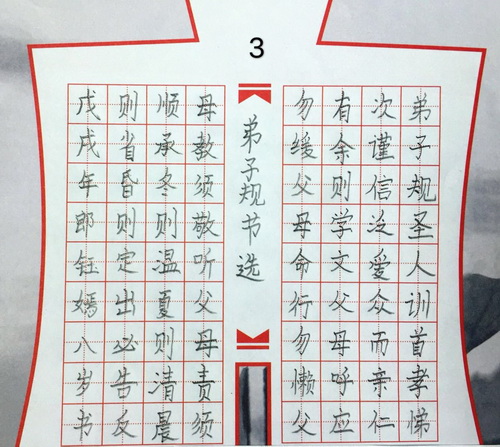 3
弟子规圣人训首孝悌
次谨信泛爱众而亲仁
有余则学文父母呼应
勿缓父母命行勿懒父
弟子规节选
母教须敬听父母责须
顺承冬则温夏则清晨
则省昏则定出必告反
戊戌年郎钰嫣八岁书